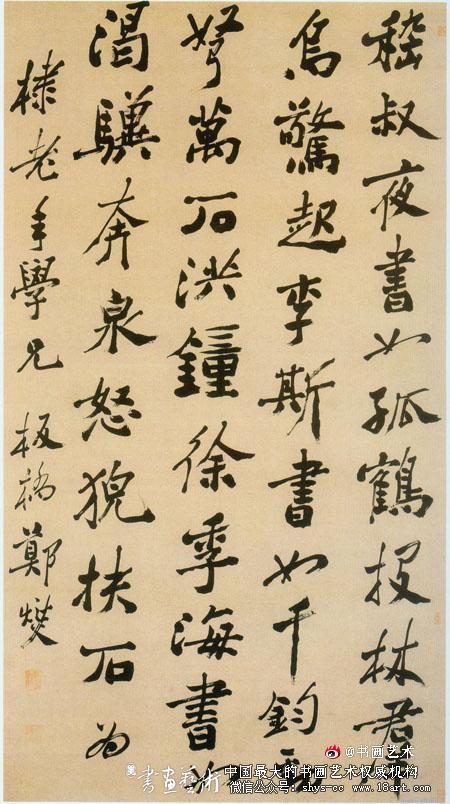 嵇叔夜書如孤鶴投林羣
烏驚起李斯書如千鈞勁
弩萬石洪鐘徐季海書如
渴驥奔泉怒猊抉石為
棣老年學兄 板橋鄭燮
@书画艺术
書畫藝術 中国最大的书画艺术权威机构
微信公众号：shys-cc www.18art.com